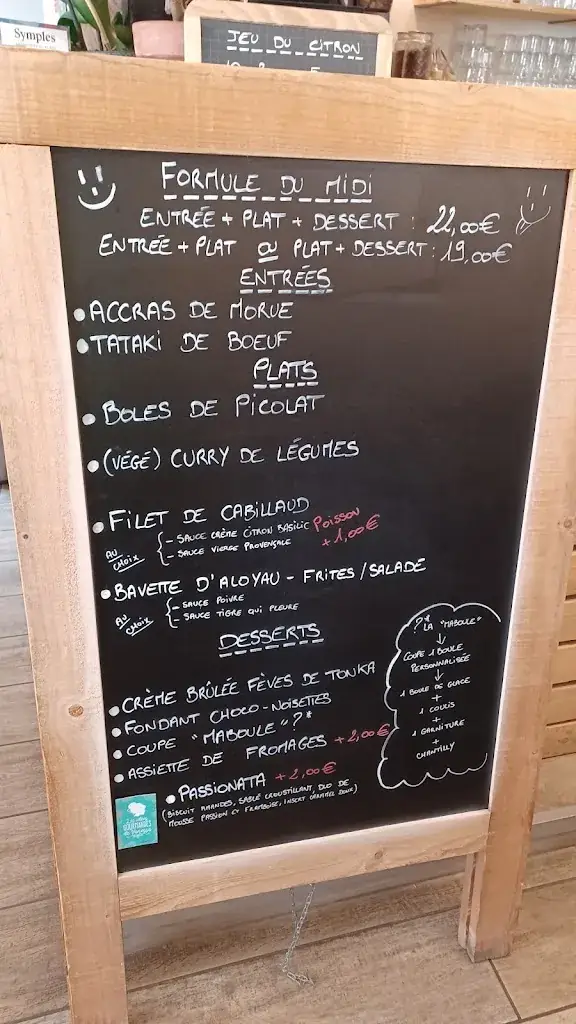 Symples
JEU DU CITRON
FORMULE DU MIDI
ENTRÉE + PLAT + DESSERT : 22,00€
ENTRÉE + PLAT OU PLAT + DESSERT : 19,00€
ENTRÉES
• ACCRAS DE MORUE
• TATAKI DE BOEUF
PLATS
• BOLES DE PICOLAT
• (VÉGÉ) CURRY DE LÉGUMES
• FILET DE CABILLAUD
AU CHOIX
- SAUCE CRÈME CITRON BASILIC
- SAUCE VIERGE PROVENÇALE
POISSON
+ 1,00€
• BAVETTE D'ALOYAU - FRITES / SALADE
AU CHOIX
- SAUCE POIVRE
- SAUCE TIGRE QUI PLEURE
DESSERTS
• CRÈME BRÛLÉE FÈVES DE TONKA
• FONDANT CHOCO-NOISETTES
• COUPE "MABOULE"?*
• ASSIETTE DE FROMAGES + 2,00€
• PASSIONATA + 2,00€
(BISCUIT AMANDES, SABLÉ CROUSTILLANT, DUO DE
MOUSSE PASSION ET FRAMBOISE, INSERT CARAMEL DOUX)
?* LA "MABOULE"
↓
COUPE 1 BOULE
PERSONNALISÉE
↓
1 BOULE DE GLACE
+
1 COULIS
+
1 GARNITURE
+
CHANTILLY